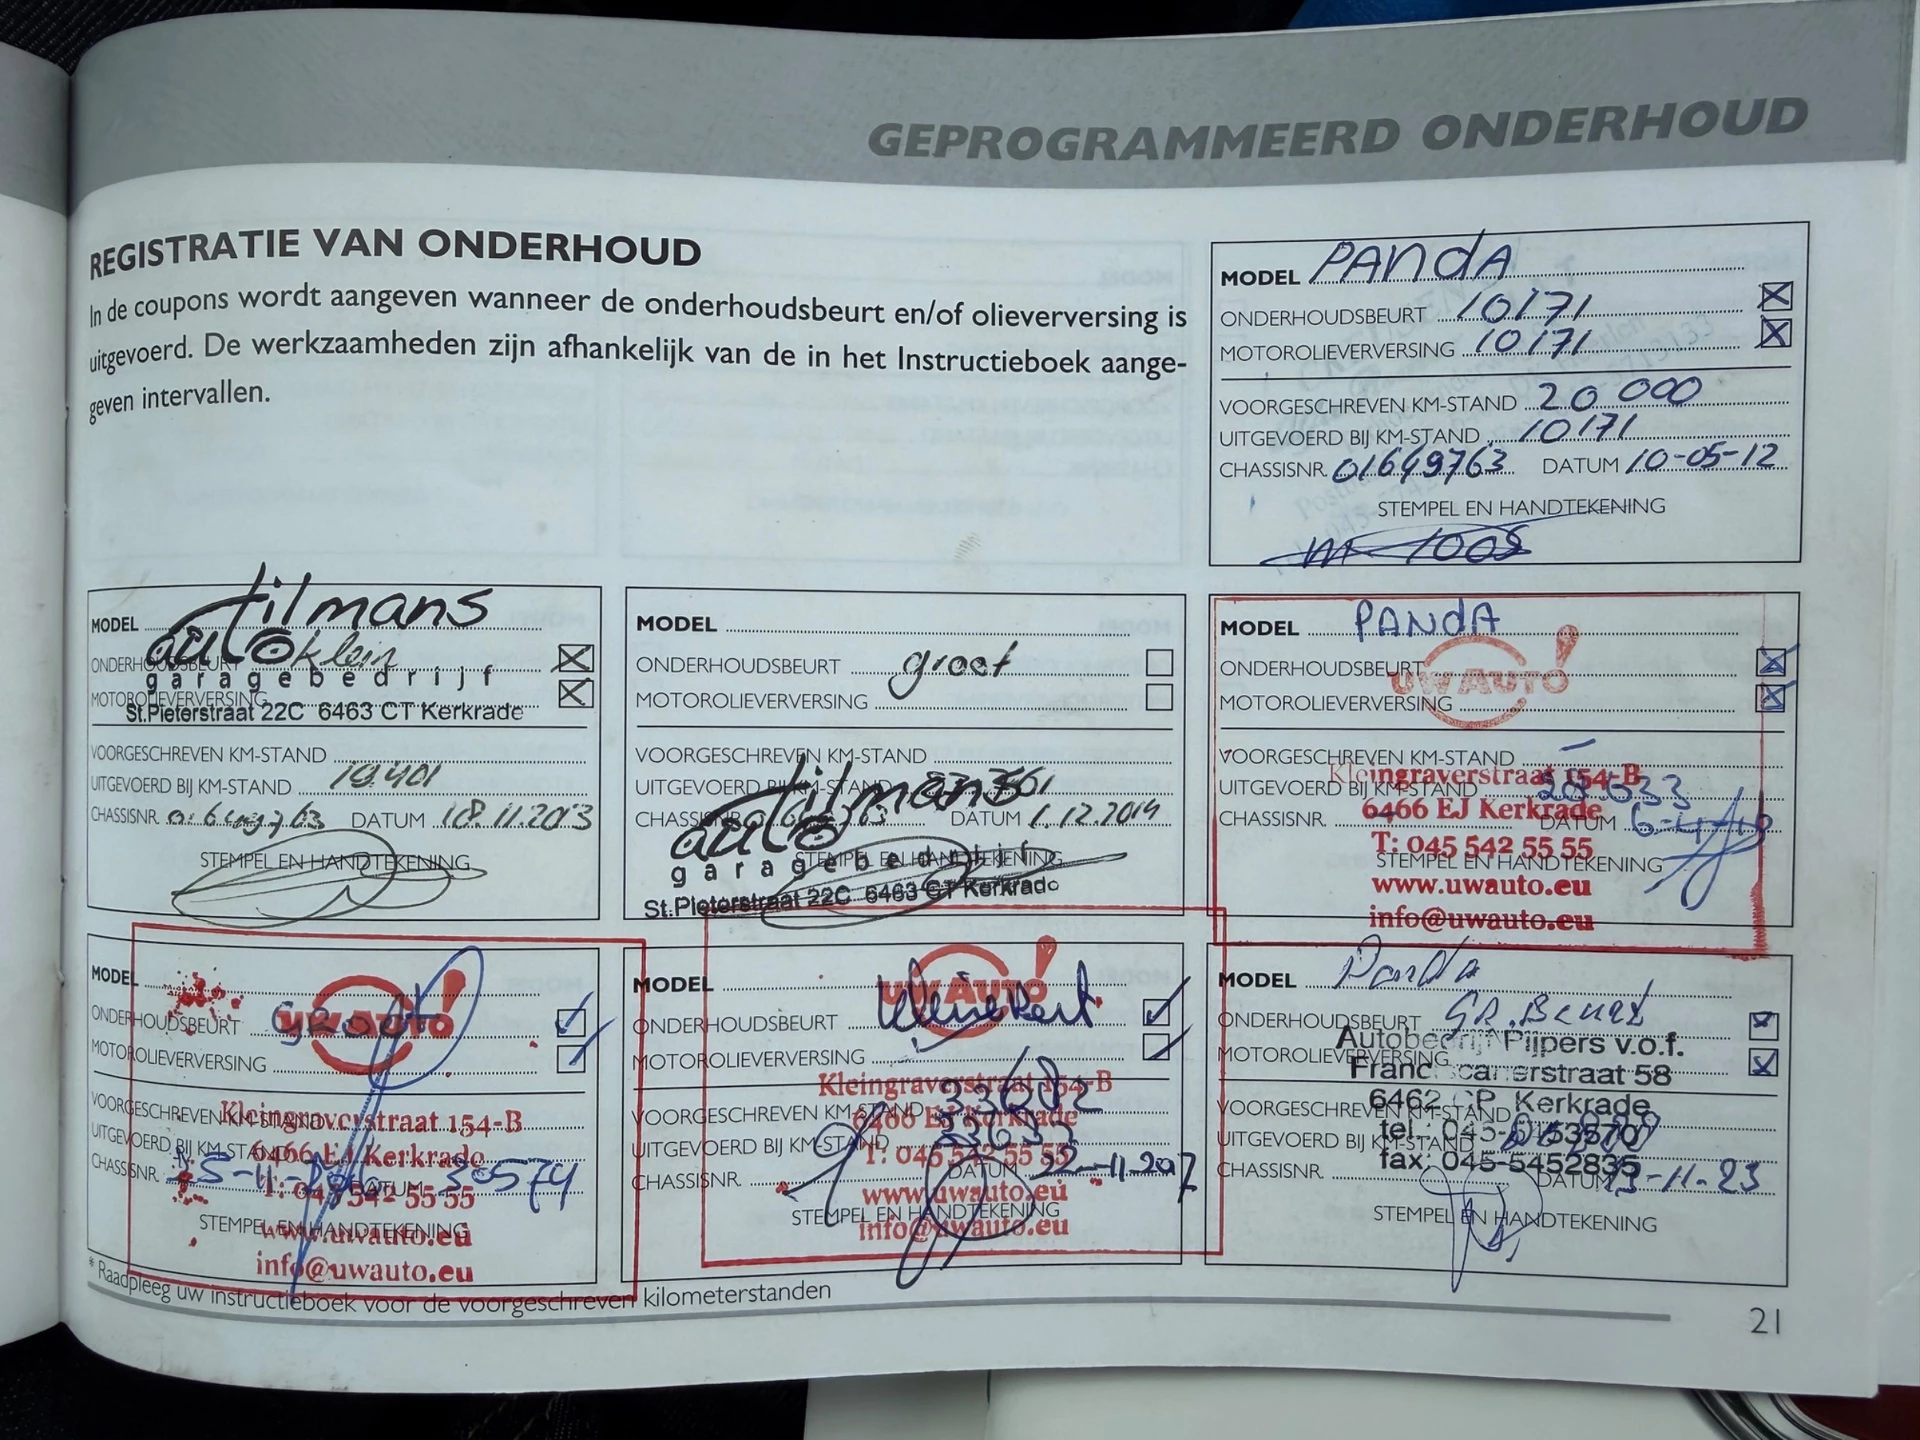 GEPROGRAMMEERD ONDERHOUD
REGISTRATIE VAN ONDERHOUD
In de coupons wordt aangeven wanneer de onderhoudsbeurt en/of olieverversing is
uitgevoerd. De werkzaamheden zijn afhankelijk van de in het Instructieboek aange-
geven intervallen.
MODEL PANDA
ONDERHOUDSBEURT 10171
MOTOROLIEVERVERSING 10171
VOORGESCHREVEN KM-STAND 20 000
UITGEVOERD BIJ KM-STAND 10171
CHASSISNR. 01649763 DATUM 10-05-12
STEMPEL EN HANDTEKENING
MODEL
tilmans
auto
ONDERHOUDSBEURT klein
garagebedrijf
MOTOROLIEVERVERSING
St.Pieterstraat 22C 6463 CT Kerkrade
VOORGESCHREVEN KM-STAND
UITGEVOERD BIJ KM-STAND 19.401
CHASSISNR. 01649763 DATUM 18.11.2013
STEMPEL EN HANDTEKENING
MODEL
ONDERHOUDSBEURT groot
MOTOROLIEVERVERSING
VOORGESCHREVEN KM-STAND
UITGEVOERD BIJ KM-STAND
tilmans
CHASSISNR. DATUM 1.12.2014
auto
STEMPEL EN HANDTEKENING
garagebedrijf
St.Pieterstraat 22C 6463 CT Kerkrade
MODEL PANDA
ONDERHOUDSBEURT
UW AUTO!
MOTOROLIEVERVERSING
VOORGESCHREVEN KM-STAND –
Kleingraverstraat 154-B
UITGEVOERD BIJ KM-STAND
6466 EJ Kerkrade
CHASSISNR. DATUM
T: 045 542 55 55
STEMPEL EN HANDTEKENING
www.uwauto.eu
info@uwauto.eu
MODEL
ONDERHOUDSBEURT Groot
UW AUTO!
MOTOROLIEVERVERSING
VOORGESCHREVEN KM-STAND
Kleingraverstraat 154-B
UITGEVOERD BIJ KM-STAND
6466 EJ Kerkrade
CHASSISNR. DATUM 30574
T: 045 542 55 55
STEMPEL EN HANDTEKENING
www.uwauto.eu
info@uwauto.eu
MODEL
UW AUTO!
ONDERHOUDSBEURT
MOTOROLIEVERVERSING
Kleingraverstraat 154-B
VOORGESCHREVEN KM-STAND
6466 EJ Kerkrade
UITGEVOERD BIJ KM-STAND
T: 045 542 55 55
CHASSISNR. DATUM 22-11-2017
www.uwauto.eu
STEMPEL EN HANDTEKENING
info@uwauto.eu
MODEL Panda
ONDERHOUDSBEURT GR. Beurt
Autobedrijf Pijpers v.o.f.
MOTOROLIEVERVERSING
Franciscanerstraat 58
6462 CP Kerkrade
VOORGESCHREVEN KM-STAND
tel.: 045-
UITGEVOERD BIJ KM-STAND
fax: 045-5452835
CHASSISNR. DATUM 13-11-23
STEMPEL EN HANDTEKENING
* Raadpleeg uw instructieboek voor de voorgeschreven kilometerstanden
21